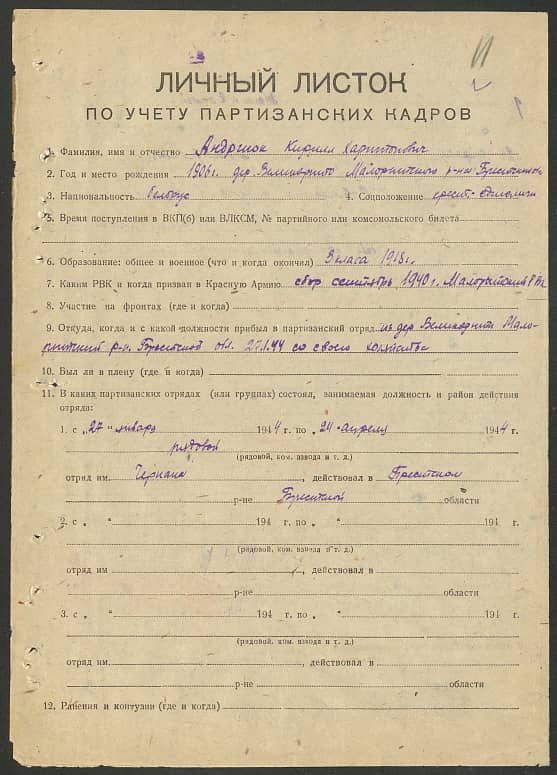 ЛИЧНЫЙ ЛИСТОК
ПО УЧЕТУ ПАРТИЗАНСКИХ КАДРОВ
1. Фамилия, имя и отчество Андреюк Кирилл Харитонович
2. Год и место рождения 1906 г. дер. Великорито Малоритского р-на Брестской
3. Национальность белорус 4. Соцположение крест.
5. Время поступления в ВКП(б) или ВЛКСМ, № партийного или комсомольского билета
6. Образование: общее и военное (что и когда окончил) 3 класа 1918 г.
7. Каким РВК и когда призван в Красную Армию сбор сентябрь 1940 г. Малоритский РВК
8. Участие на фронтах (где и когда)
9. Откуда, когда и с какой должности прибыл в партизанский отряд из дер. Великорито Мало-
ритский р-н. Брестской обл. 27.1.44 со своего хозяйства
10. Был ли в плену (где и когда)
11. В каких партизанских отрядах (или группах) состоял, занимаемая должность и район действия
отряда:
1. с „27" января 1944 г. по „24" апреля 1944 г.
рядовой
(рядовой, ком. взвода и т. д.)
отряд им. Чернака, действовал в Брестском
р-не Брестской области
2. с „ " 194 г. по „ " 194 г.
(рядовой, ком. взвода и т. д.)
отряд им. , действовал в
р-не области
3. с „ " 194 г. по „ " 194 г.
(рядовой, ком. взвода и т. д.)
отряд им. , действовал в
р-не области
12. Ранения и контузии (где и когда)